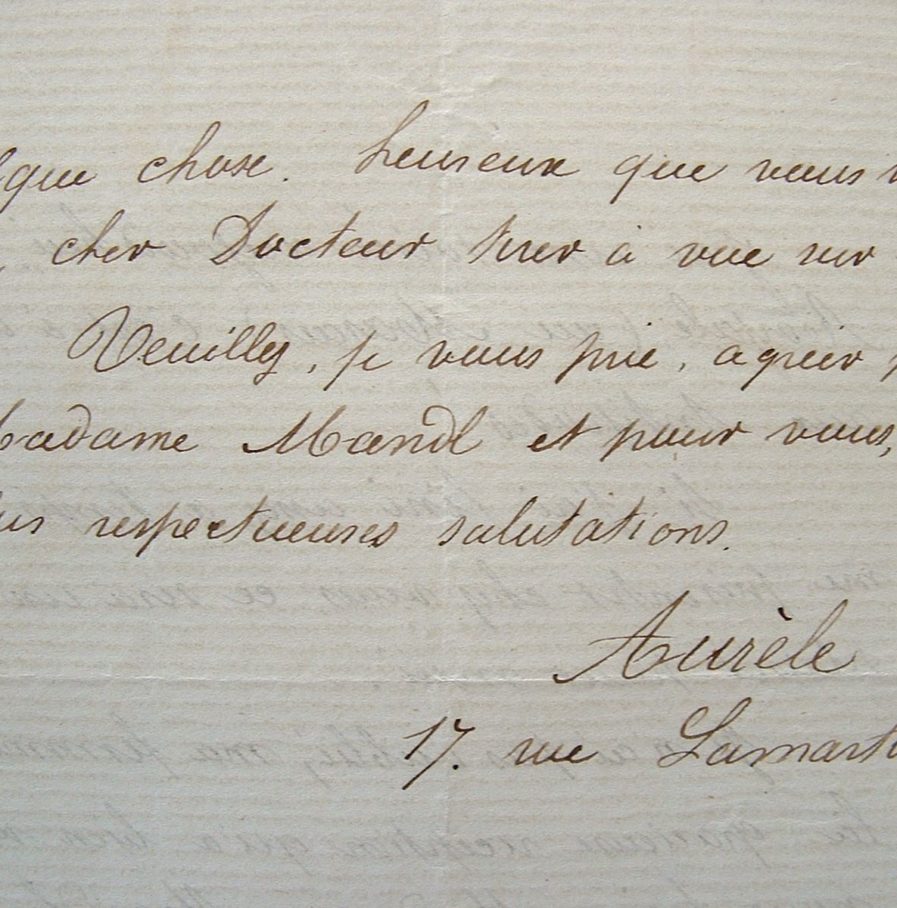 que chose. heureux que vous
cher Docteur tirer à vue sur
Veuillez, je vous prie, agréer
Madame Mandl et pour vous,
respectueuses salutations.
Aurèle
17. rue Lamart